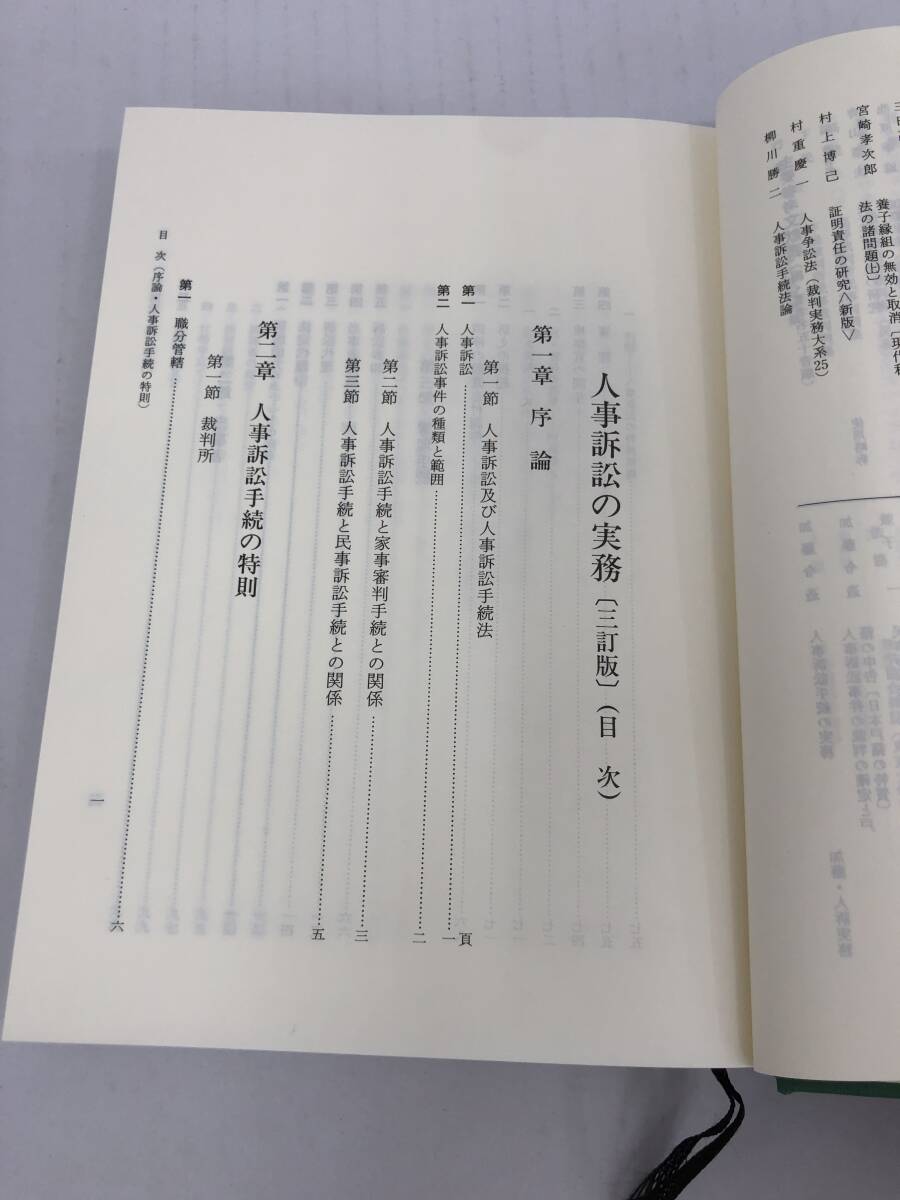 宮崎孝次郎
養子縁組の無効と取消
法の諸問題(上)〕
村上博己
証明責任の研究〈新版〉
村重慶一
人事争訟法(裁判実務大系25)
柳川勝二
人事訴訟手続法論
人事訴訟の実務〔三訂版〕(目 次)
第一章 序 論
第一節 人事訴訟及び人事訴訟手続法
第一 人事訴訟……一頁
第二 人事訴訟事件の種類と範囲……二
第二節 人事訴訟手続と家事審判手続との関係……三
第三節 人事訴訟手続と民事訴訟手続との関係……五
第二章 人事訴訟手続の特則
第一節 裁判所
第一 職分管轄……六
目 次(序論・人事訴訟手続の特則)
一